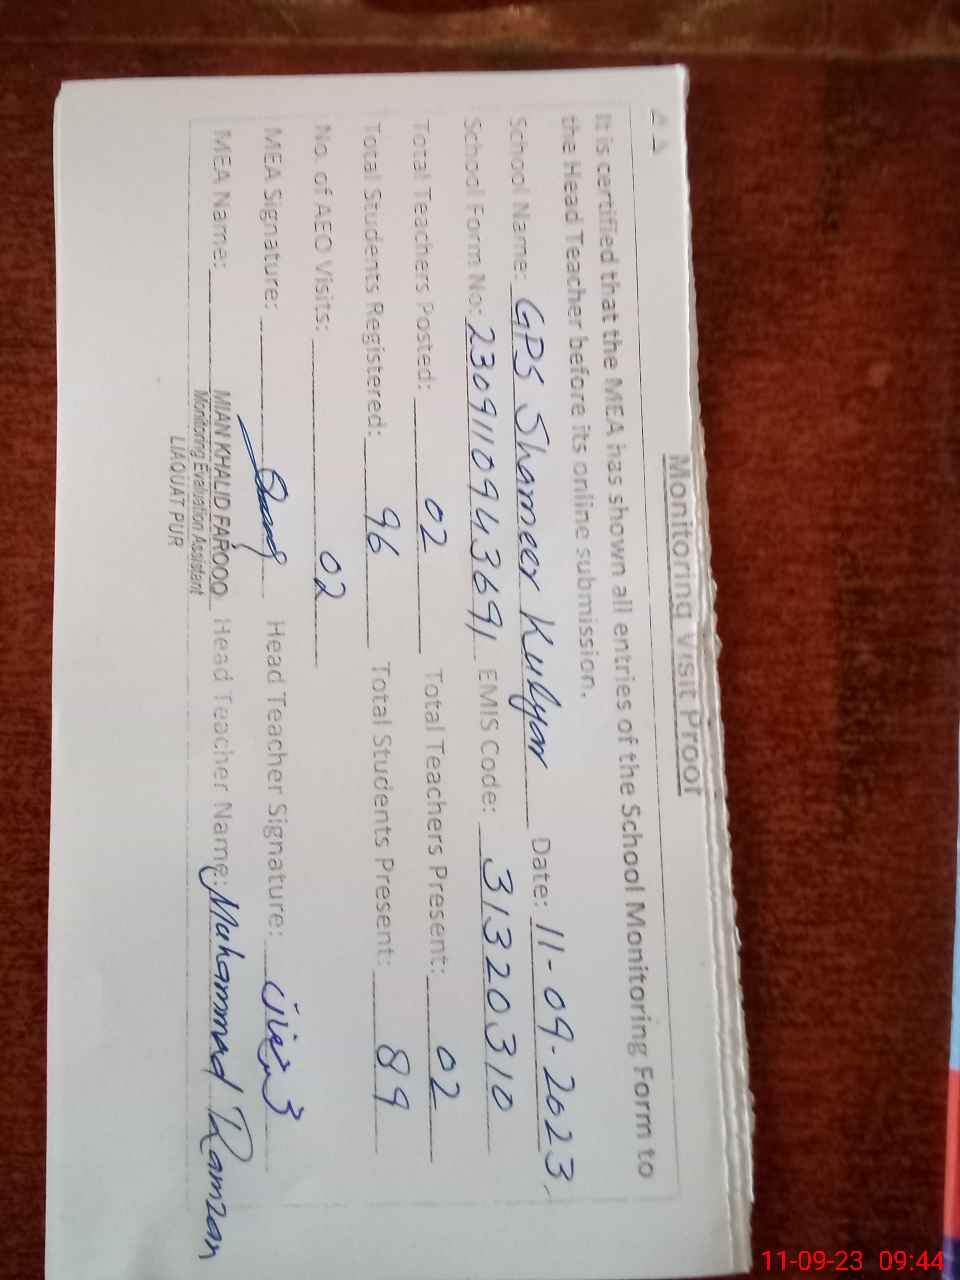 Monitoring Visit Proof
It is certified that the MEA has shown all entries of the School Monitoring Form to
the Head Teacher before its online submission.
School Name: GPS Shameer Kulyar Date: 11-09-2023
School Form No: 2309110943691 EMIS Code: 31320310
Total Teachers Posted: 02 Total Teachers Present: 02
Total Students Registered: 96 Total Students Present: 89
No. of AEO Visits: 02
MEA Signature: Head Teacher Signature:
MEA Name: MIAN KHALID FAROOQ Head Teacher Name: Muhammad Ramzan
Monitoring Evaluation Assistant
LIAQUAT PUR
11-09-23 09:44